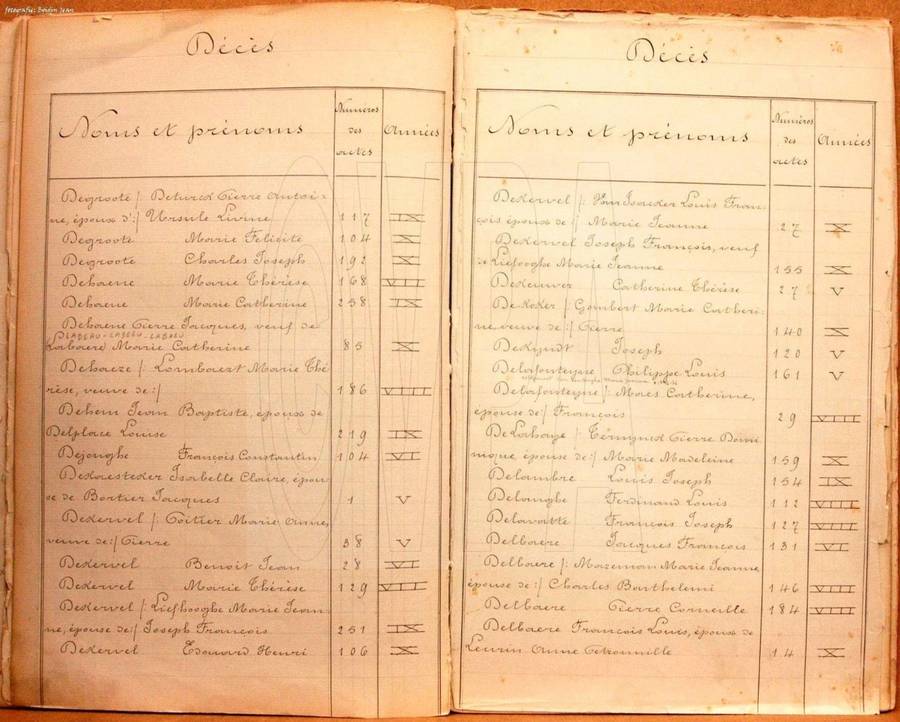 fotografie: Boidin Jean
Décès
Noms et prénoms
Numéros des actes
Années
Degroote /: Deturck Pierre Antoi-
ne, époux d':/ Ursule Livine 117 IX
Degroote Marie Felicité 104 X
Degroote Charles Joseph 192 X
Dehaene Marie Thérèse 168 VII
Dehaene Marie Catherine 258 IX
Dehaene Pierre Jacques, veuf de
LABEAU - LABEEU - LABAEU
Labaere Marie Catherine 85 X
Dehaeze /: Lombaert Marie Thé
rèse, veuve de:/ 186 VIIII
Dehem Jean Baptiste, époux de
Delplace Louise 219 IX
Dejonghe François Constantin 104 VI
Dekaesteker Isabelle Claire, épou
se de Bortier Jacques 1 V
Dekervel /: Goitier Marie Anne,
veuve de:/ Pierre 38 V
Dekervel Benoit Jean 28 VI
Dekervel Marie Thérèse 129 VIII
Dekervel /: Liefhooghe Marie Jean
ne, épouse de:/ Joseph François 251 IX
Dekervel Edouard Henri 106 X
Décès
Noms et prénoms
Numéros des actes
Années
Dekervel /: Van Isacker Louis Fran
çois époux de :/ Marie Jeanne 27 X
Dekervel Joseph François, veuf
de Liefooghe Marie Jeanne 155 X
Dekeuver Catherine Thérèse 27 V
De Koker /: Gombert Marie Catheri
ne veuve de :/ Pierre 140 X
Dekyndt Joseph 120 V
Delafonteyne Philippe Louis 161 V
Delafonteyne /: Maes Catherine,
épouse de:/ François 29 VIII
De Lahaye /: Térmynck Pierre Domi
nique, épouse de:/ Marie Madeleine 159 X
Delambre Louis Joseph 154 IX
Delanghe Ferdinand Louis 112 VIII
Delavatte François Joseph 127 VIII
Delbaere Jacques François 131 VI
Delbaere /: Mazeman Marie Jeanne
épouse de :/ Charles Barthelemi 146 VIII
Delbaere Pierre Corneille 184 VIII
Delbaere François Louis, époux de
Leurin Anne Petronnille 14 X